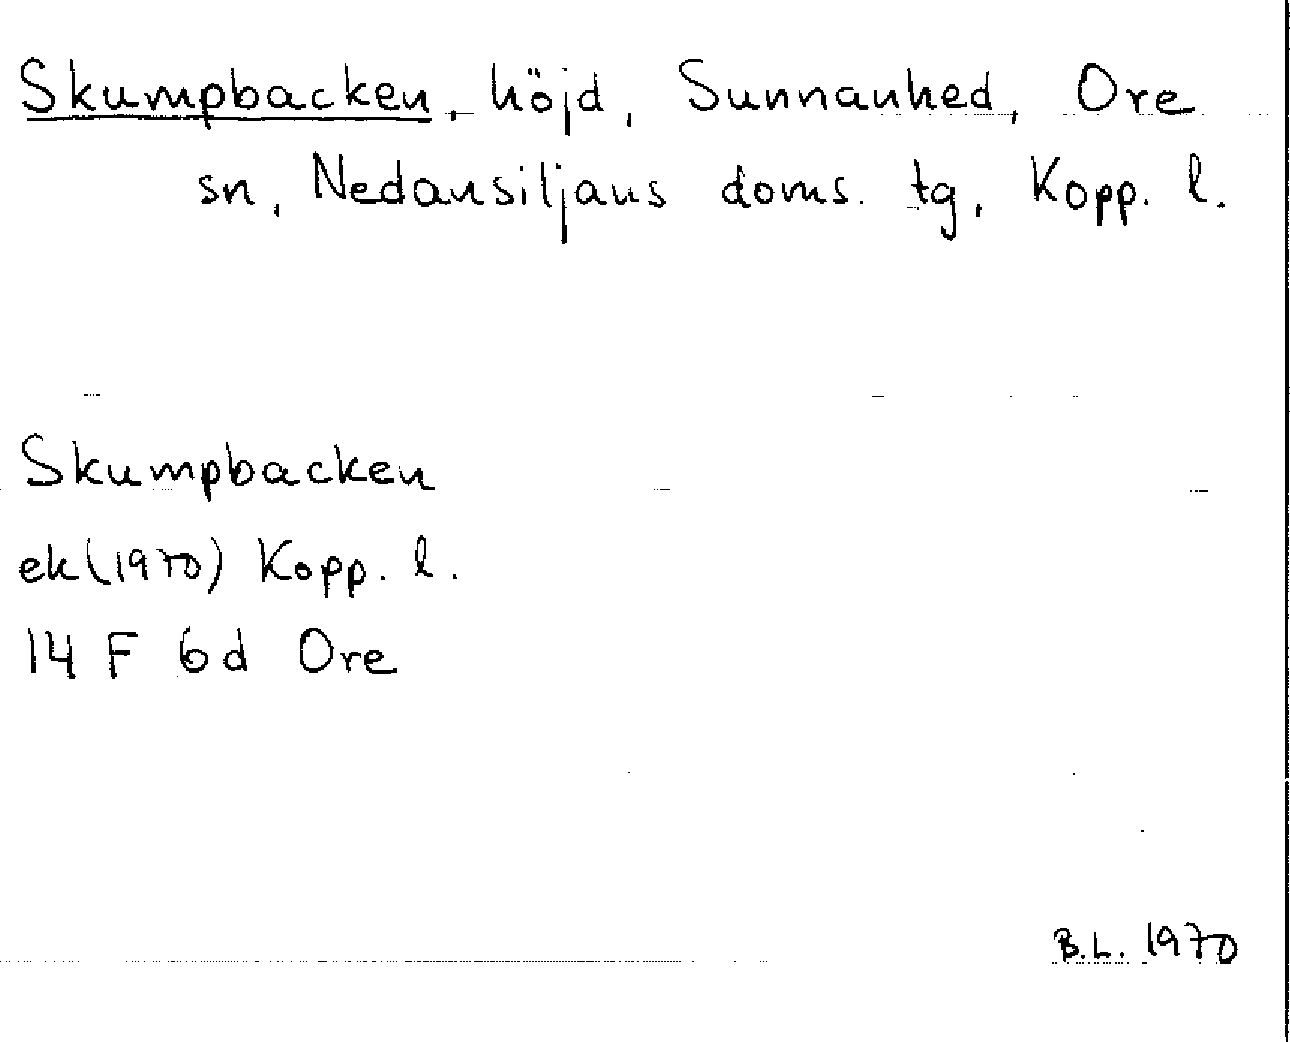 Skumpbacken, höjd, Sunnanhed, Ore
sn, Nedansiljans doms. tg, Kopp. l.
Skumpbacken
ek (1970) Kopp. l.
14 F 6d Ore
B.L. 1970